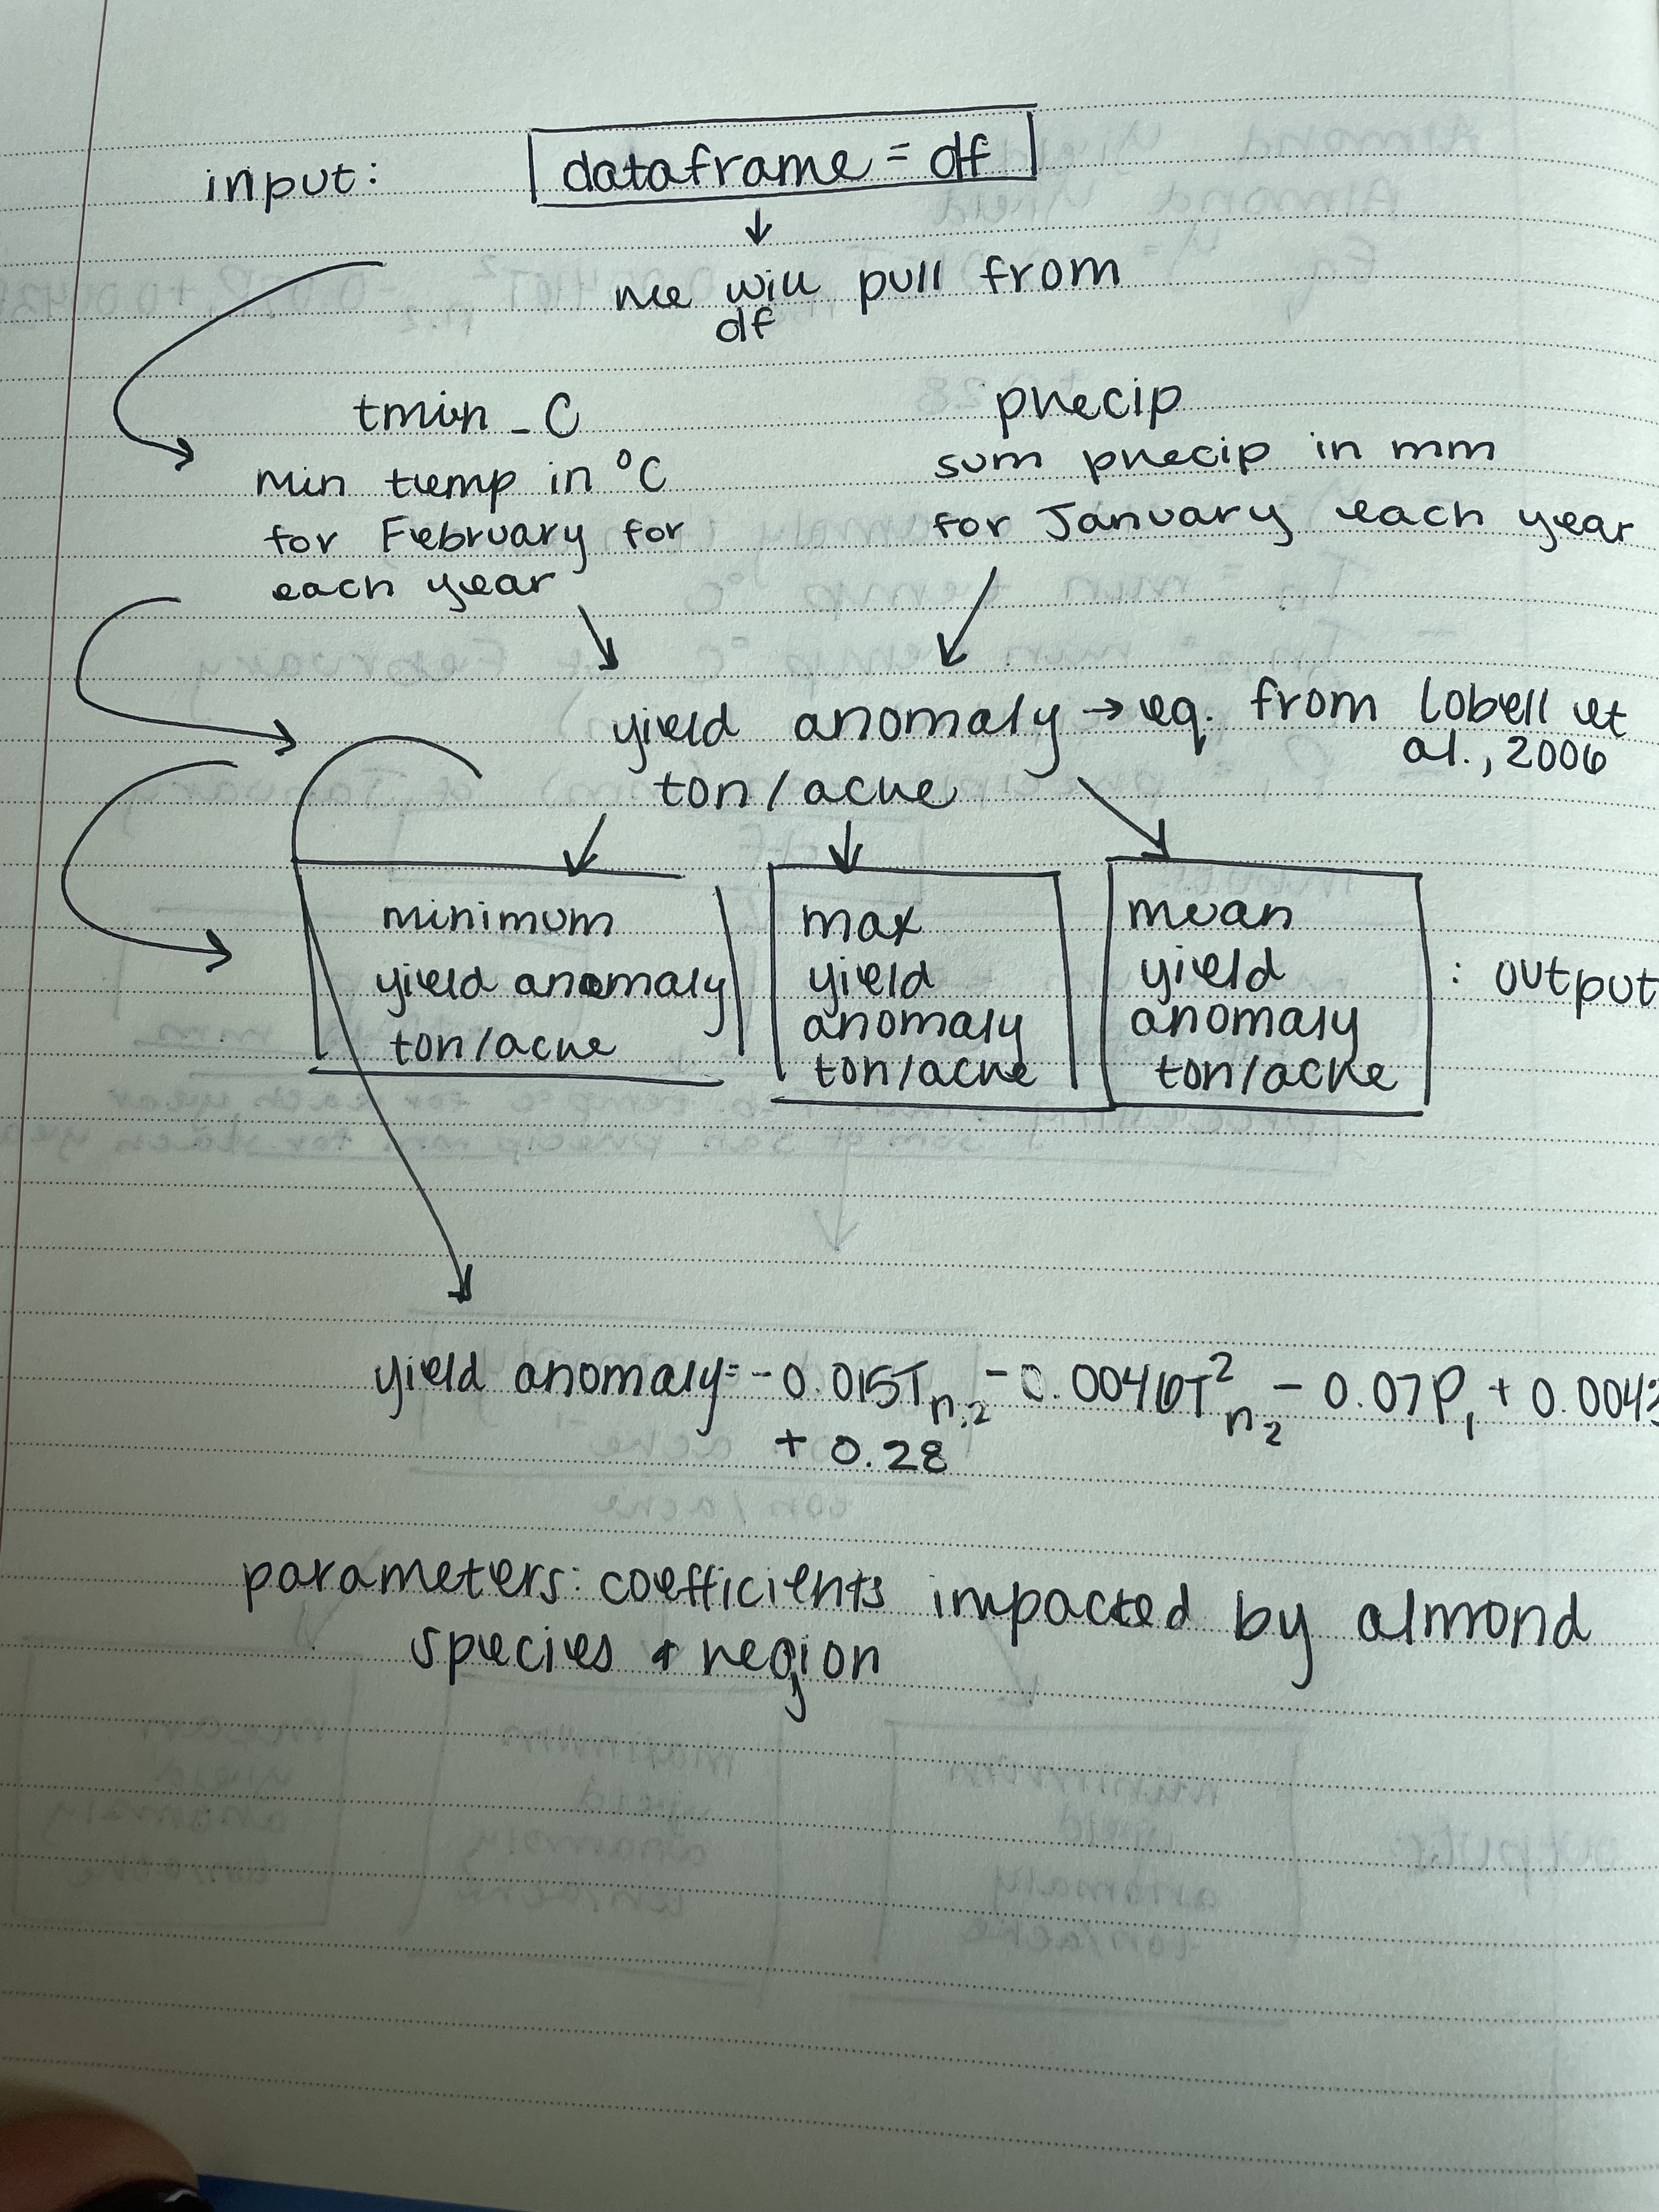 input: dataframe = df
we will pull from
df
tmin_C
min temp in °C
for February for
each year
precip
sum precip in mm
for January each year
yield anomaly → eq. from Lobell et
al., 2006
ton/acre
minimum
yield anomaly
ton/acre
max
yield
anomaly
ton/acre
mean
yield
anomaly
ton/acre
: output
yield anomaly = -0.015Tn,2 - 0.0046T²n,2 - 0.07P1 + 0.0043
+ 0.28
parameters: coefficients impacted by almond
species & region